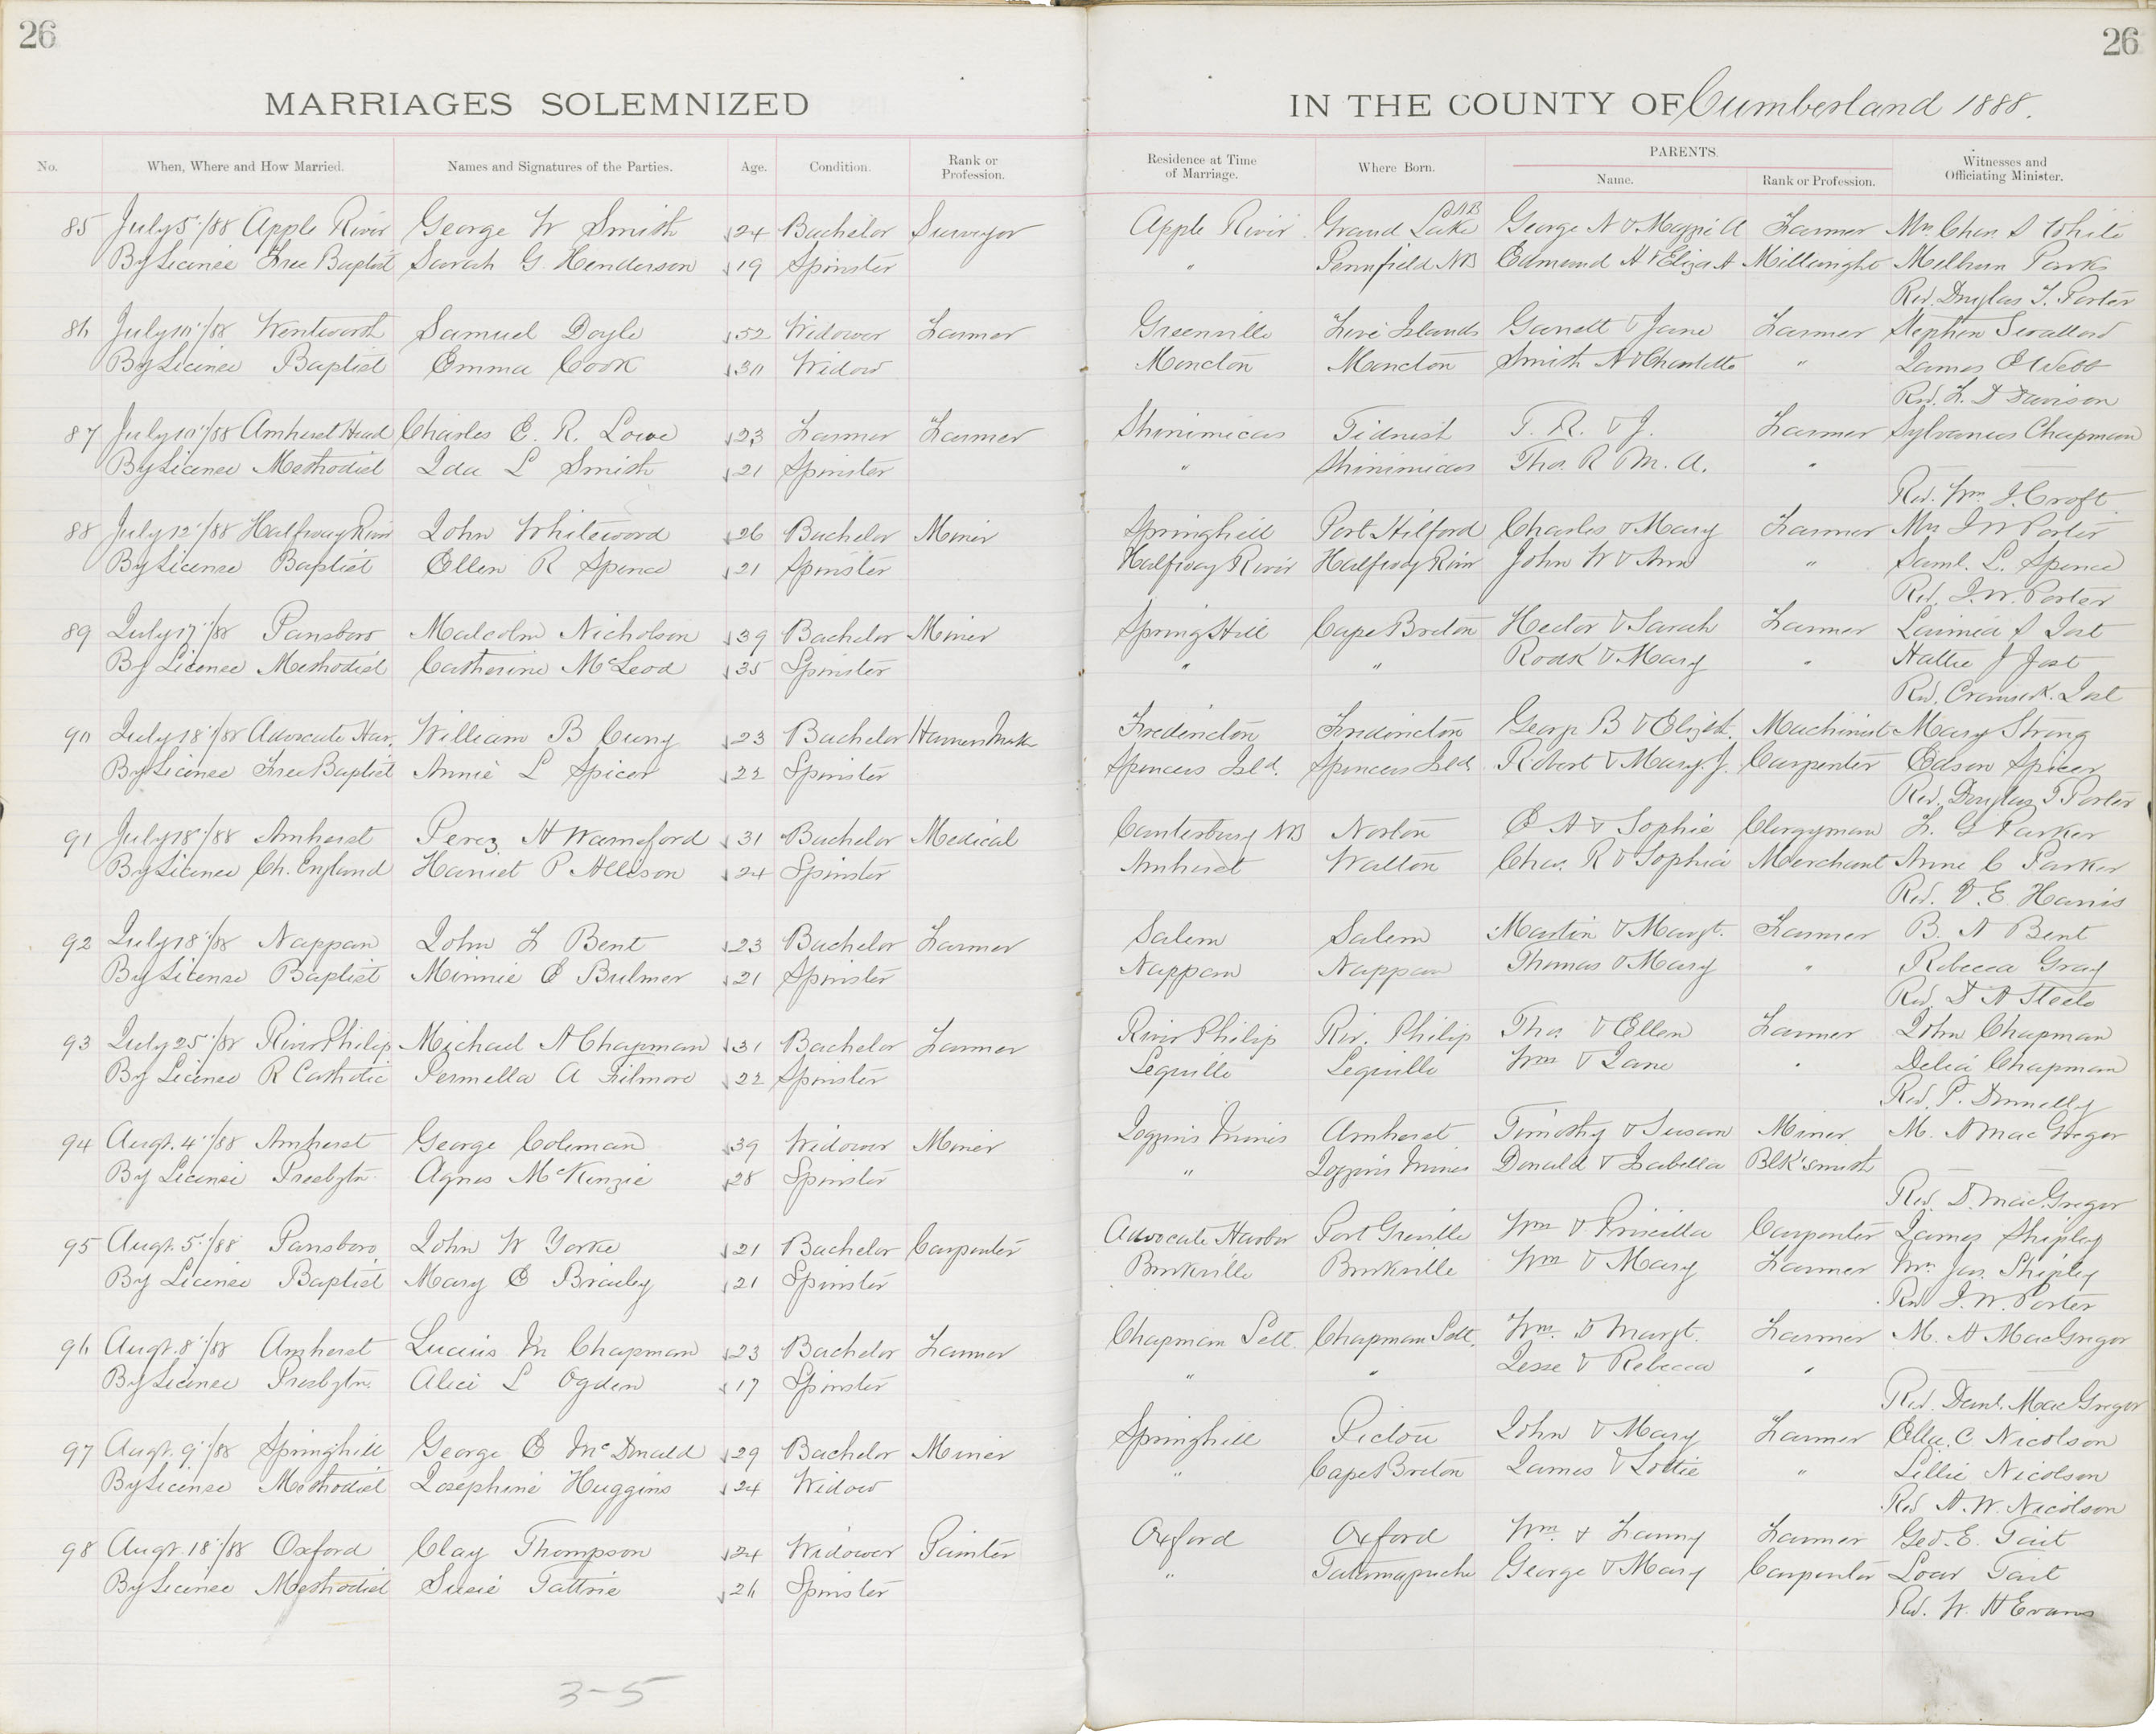 26
26
MARRIAGES SOLEMNIZED
IN THE COUNTY OF Cumberland 1888.
No. When, Where and How Married. Names and Signatures of the Parties. Age. Condition. Rank or Profession. Residence at Time of Marriage. Where Born. PARENTS. Name. Rank or Profession. Witnesses and Officiating Minister.
85 July 5/88 Apple River George W Smith 24 Bachelor Surveyor Apple River Grand Lake NB George N & Maggie A Farmer Mrs. Chas S White
By License Free Baptist Sarah G. Henderson 19 Spinster " Pennfield NB Edmund A & Eliza A Millwright Parks
Rev. Douglas T. Porter
86 July 10/88 Wentworth Samuel Doyle 52 Widower Farmer Greenville Five Islands Garrett & Jane Farmer Stephen Swallow
By License Baptist Emma Cook 30 Widow Moncton Moncton Smith N & Charlotte " James E Webb
Rev. F. D Davison
87 July 10/88 Amherst Head Charles E. R. Lowe 23 Farmer Farmer Shinimicas Tidnish T. R. & J. Farmer Sylvanus Chapman
By License Methodist Ida L Smith 21 Spinster " Shinimicas Thos. R & M. A. "
Rev. Wm. J Croft
88 July 12/88 Halfway River John Whitewood 26 Bachelor Miner Springhill Port Hilford Charles & Mary Farmer Mrs J W Porter
By License Baptist Ellen R Spence 21 Spinster Halfway River Halfway River John W & Ann " Saml. L. Spence
Rev. J. W. Porter
89 July 17/88 Parrsboro Malcolm Nicholson 39 Bachelor Miner Spring Hill Cape Breton Hector & Sarah Farmer S Jost
By License Methodist Catherine McLeod 35 Spinster " " Rodk & Mary " Hattie J Jost
Rev. Jost
90 July 18/88 Advocate Har. William B Curry 23 Bachelor Harness Maker Fredericton Fredericton George B & Elizth. Machinist Mary Strong
By License Free Baptist Annie L Spicer 22 Spinster Spencers Isld. Spencers Isld. Robert & Mary J. Carpenter Edson Spicer
Rev. Douglas T Porter
91 July 18/88 Amherst Perez H Warneford 31 Bachelor Medical Canterbury NB Norton E A & Sophie Clergyman F. G Parker
By License Ch. England Harriet P Allison 24 Spinster Amherst Walton Chas. R & Sophia Merchant Anne C Parker
Rev. V. E. Harris
92 July 18/88 Nappan John F Bent 23 Bachelor Farmer Salem Salem Martin & Margt. Farmer B. A Bent
By License Baptist Minnie E Bulmer 21 Spinster Nappan Nappan Thomas & Mary " Rebecca Gray
Rev. D A Steele
93 July 25/88 River Philip Michael A Chapman 31 Bachelor Farmer River Philip Riv. Philip Thos. & Ellen Farmer John Chapman
By License R Catholic Permella A Filmore 22 Spinster Leqville Leqville Wm & Jane " Delia Chapman
Rev. P. Donnelly
94 Augt. 4/88 Amherst George Coleman 39 Widower Miner Joggins Mines Amherst Timothy & Susan Miner M. A MacGregor
By License Presbytn. Agnes McKenzie 28 Spinster " Joggins Mines Donald & Isabella Blk'smith
Rev. D. MacGregor
95 Augt. 5/88 Parrsboro John W Yorke 21 Bachelor Carpenter Advocate Harbor Port Greville Wm & Priscilla Carpenter James Shipley
By License Baptist Mary E Brialey 21 Spinster Brookville Brookville Wm & Mary Farmer Mrs. Jas. Shipley
Rev J. W. Porter
96 Augt. 8/88 Amherst Lucius M Chapman 23 Bachelor Farmer Chapman Sett. Chapman Sett. Wm. & Margt. Farmer M. A MacGregor
By License Presbytn. Alice L Ogden 17 Spinster " " Jesse & Rebecca "
Rev. Danl. MacGregor
97 Augt. 9/88 Springhill George E McDonald 29 Bachelor Miner Springhill Pictou John & Mary Farmer Ella. C Nicolson
By License Methodist Josephine Huggins 24 Widow " Cape Breton James & Lottie " Lillie Nicolson
Rev A. W. Nicolson
98 Augt. 18/88 Oxford Clay Thompson 24 Widower Painter Oxford Oxford Wm & Fanny Farmer Geo. E. Tait
By License Methodist Susie Tattrie 26 Spinster " Tatamagouche George & Mary Carpenter Tait
Rev. W. H Evans
3-5